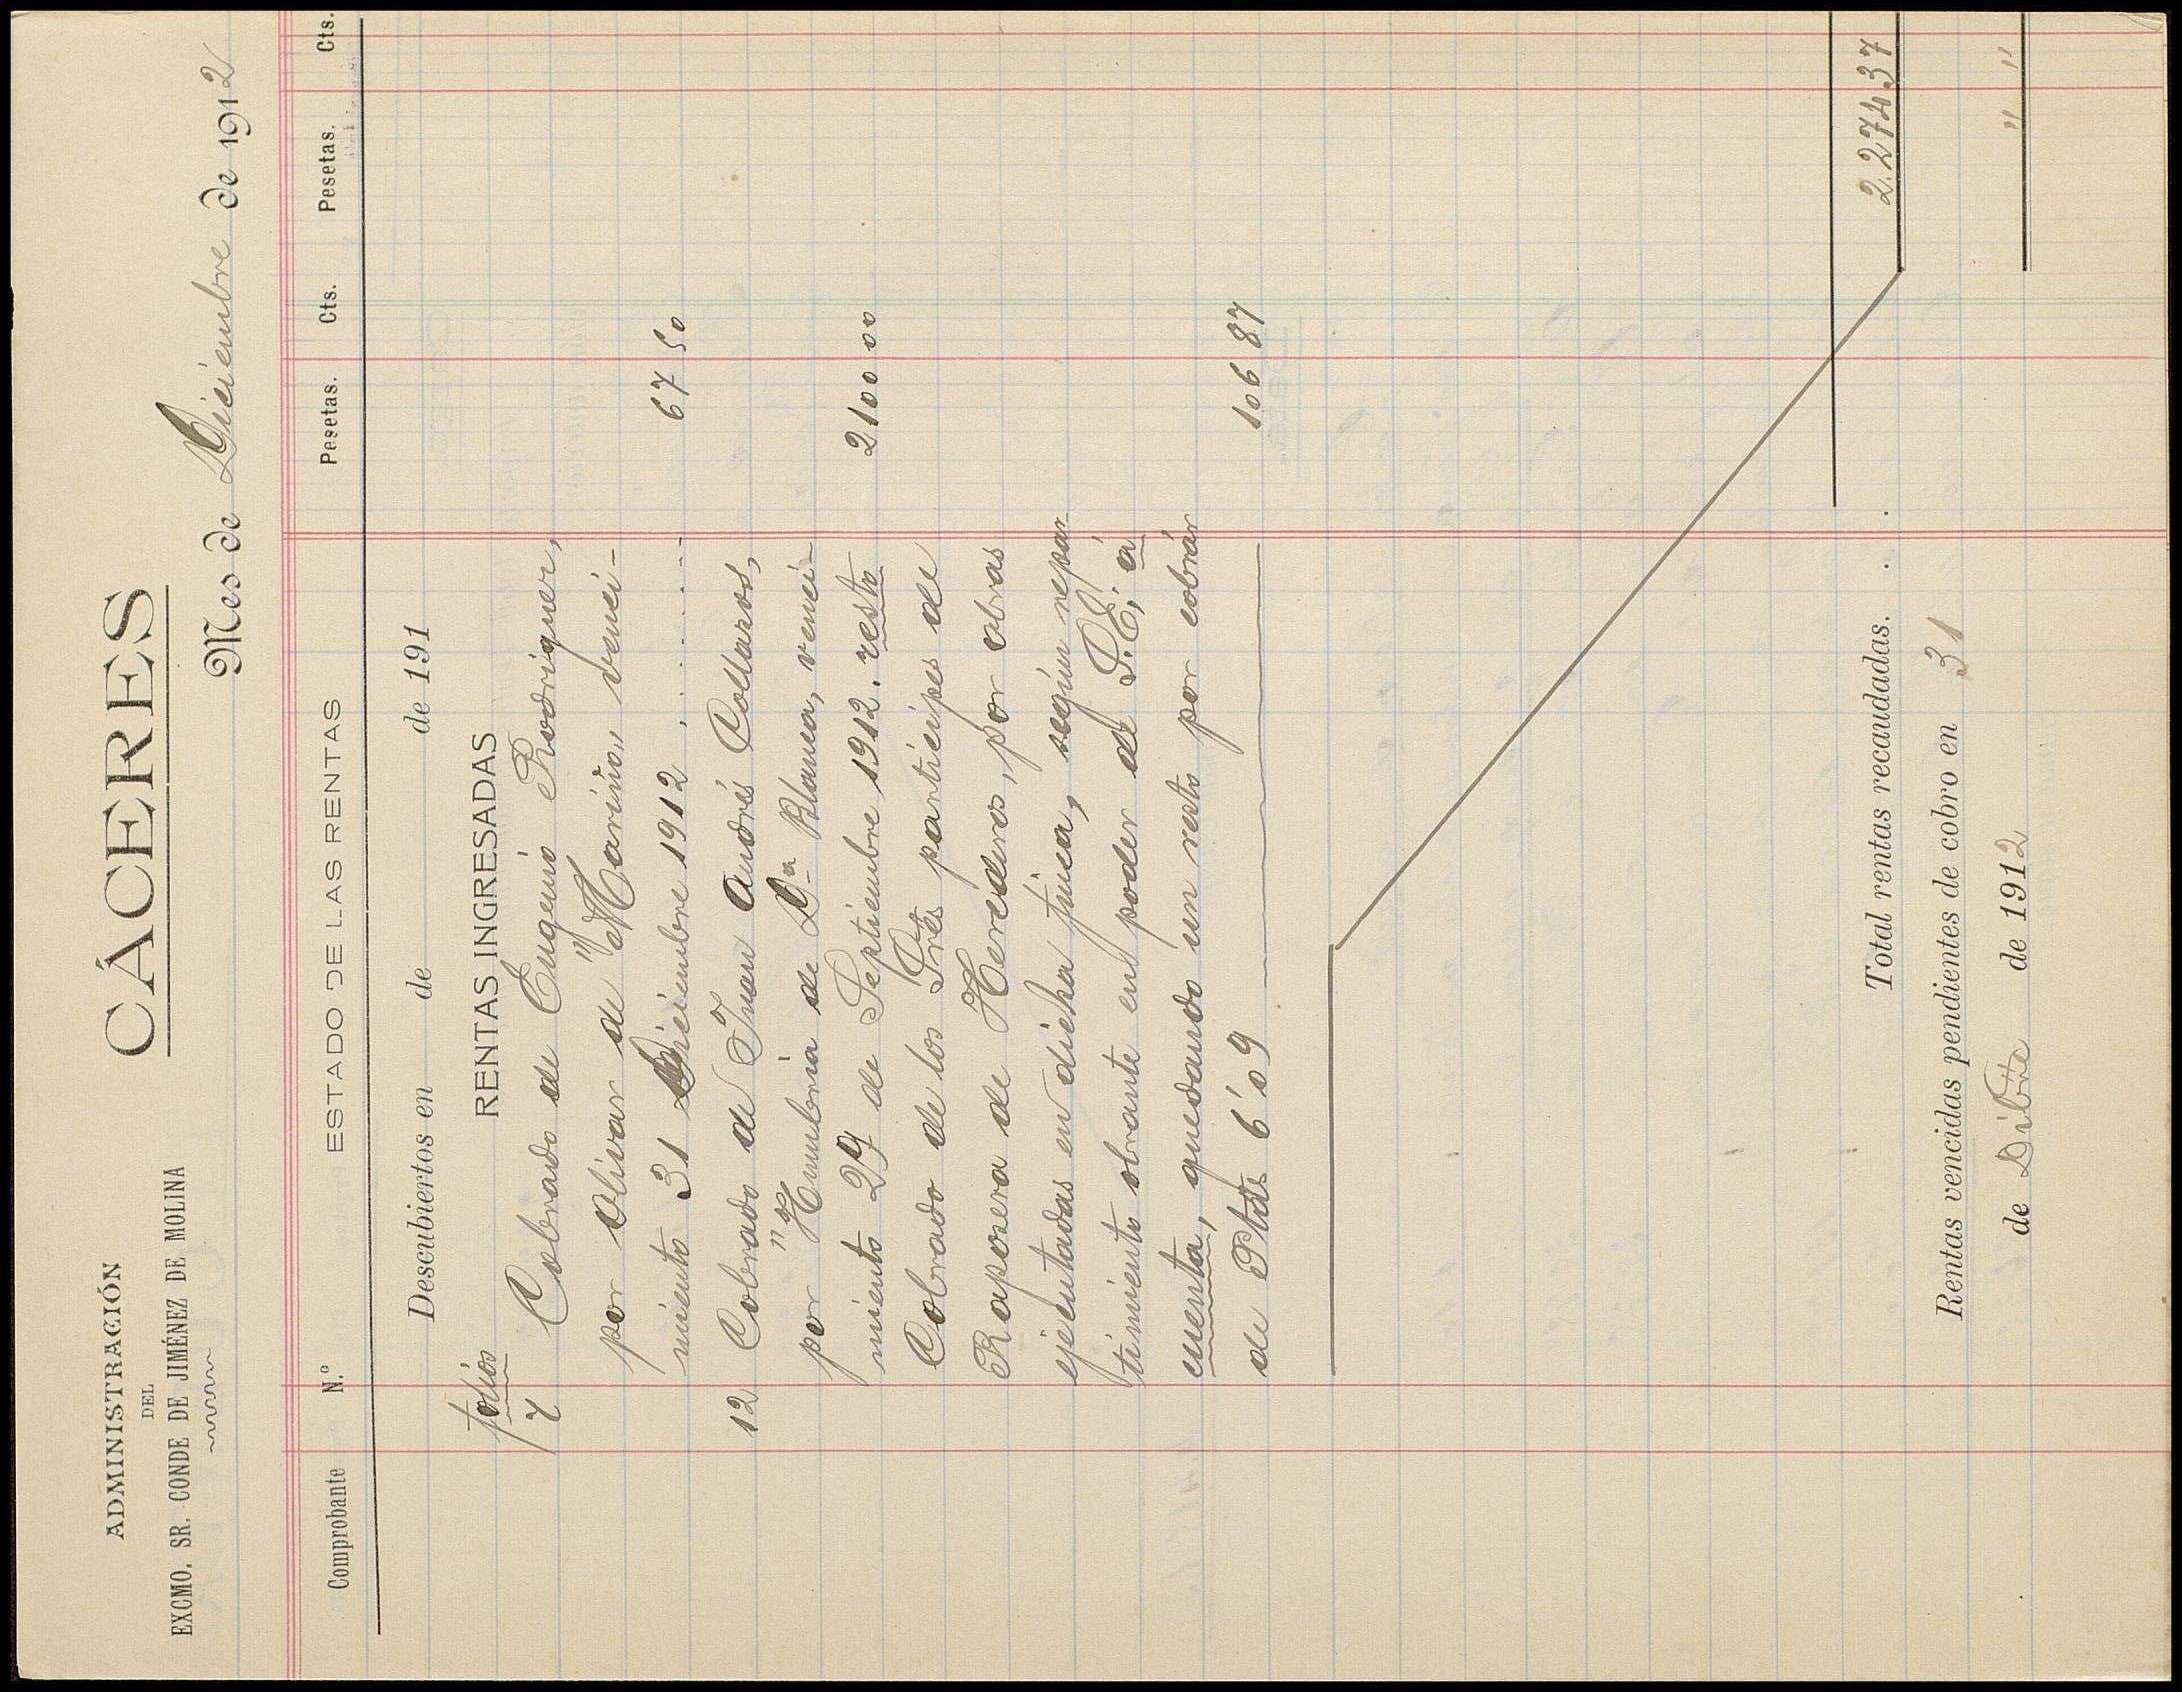 ADMINISTRACIÓN
DEL
EXCMO. SR. CONDE DE JIMÉNEZ DE MOLINA
CÁCERES
Mes de Diciembre de 1912
Comprobante N.º ESTADO DE LAS RENTAS Pesetas. Cts. Pesetas. Cts.
Descubiertos en de de 191
folios RENTAS INGRESADAS
7 Cobrado de Eugenio Rodriguez,
por olivar de "Mariño" venci-
miento 31 Diciembre 1912 . . . . . . 67 50
12 Cobrado de Juan Andrés Collazos,
por "Humbria de D.ª Blanca, venci-
miento 29 de Septiembre 1912. resto 2100 00
Cobrado de los Sres partícipes de
Raposera de Herederos, por obras
ejecutadas en dicha finca, según repar-
timiento obrante en poder de S.E; á
cuenta, quedando un resto por cobrár
de Ptas 6'09 106 87
Total rentas recaudadas. . . 2.274 37
Rentas vencidas pendientes de cobro en 31
de Dibre de 1912 " "